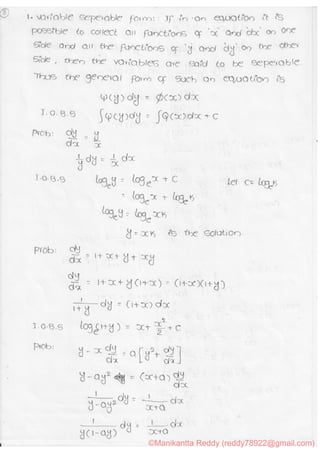 ③
1. variable seperable form: If in an equation it is
possible to collect all functions of 'x' and 'dx' on one
side and all the functions of 'y' and 'dy' on the other
side, then the variables are said to be seperable.
Thus the general form of such an equation is
φ(y) dy = ϕ(x) dx
I.O.B.S ∫φ(y)dy = ∫Q(x)dx + c
Prob: dy/dx = y/x
1/y dy = 1/x dx
I.O.B.S logₑy = logₑx + c Let c = logₑk
= logₑx + logₑk
logₑy = logₑxk
y = xk is the solution
Prob: dy/dx = 1+x+y+xy
dy/dx = 1+x+y(1+x) = (1+x)(1+y)
1/(1+y) dy = (1+x) dx
I.O.B.S log(1+y) = x + x²/2 + c
Prob: y - x dy/dx = a[y² + dy/dx]
y - ay² = (x+a) dy/dx
1/(y-ay²) dy = 1/(x+a) dx
1/(y(1-ay)) dy = 1/(x+a) dx
©Manikantta Reddy (reddy78922@gmail.com)